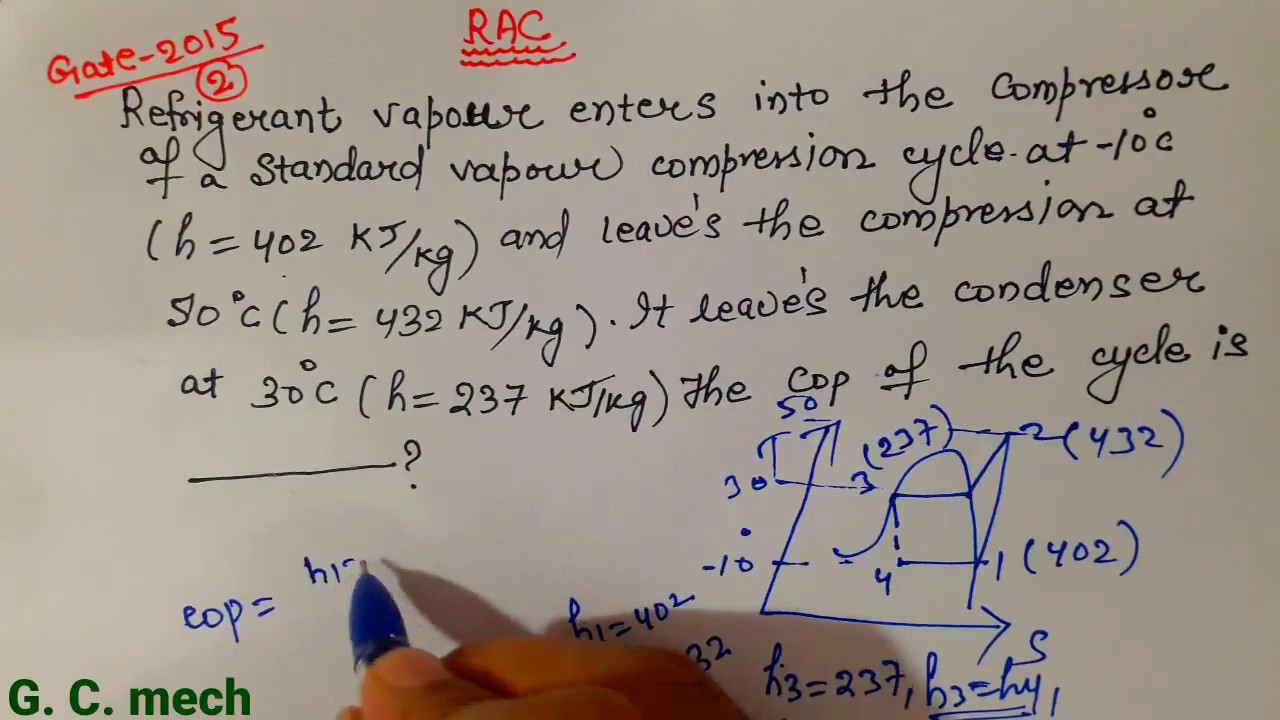 RAC
Gate-2015
2
Refrigerant vapour enters into the compressore
of a Standard vapour compression cycle. at -10°C
(h = 402 KJ/kg) and leave's the compression at
50°C (h = 432 KJ/kg). It leave's the condenser
at 30°C (h = 237 KJ/kg) The cop of the cycle is
?
50
T
30
-10
3 (237)
2 (432)
4
1 (402)
S
cop = h1-
h1 = 402
32
h3 = 237, h3 = h4,
G. C. mech